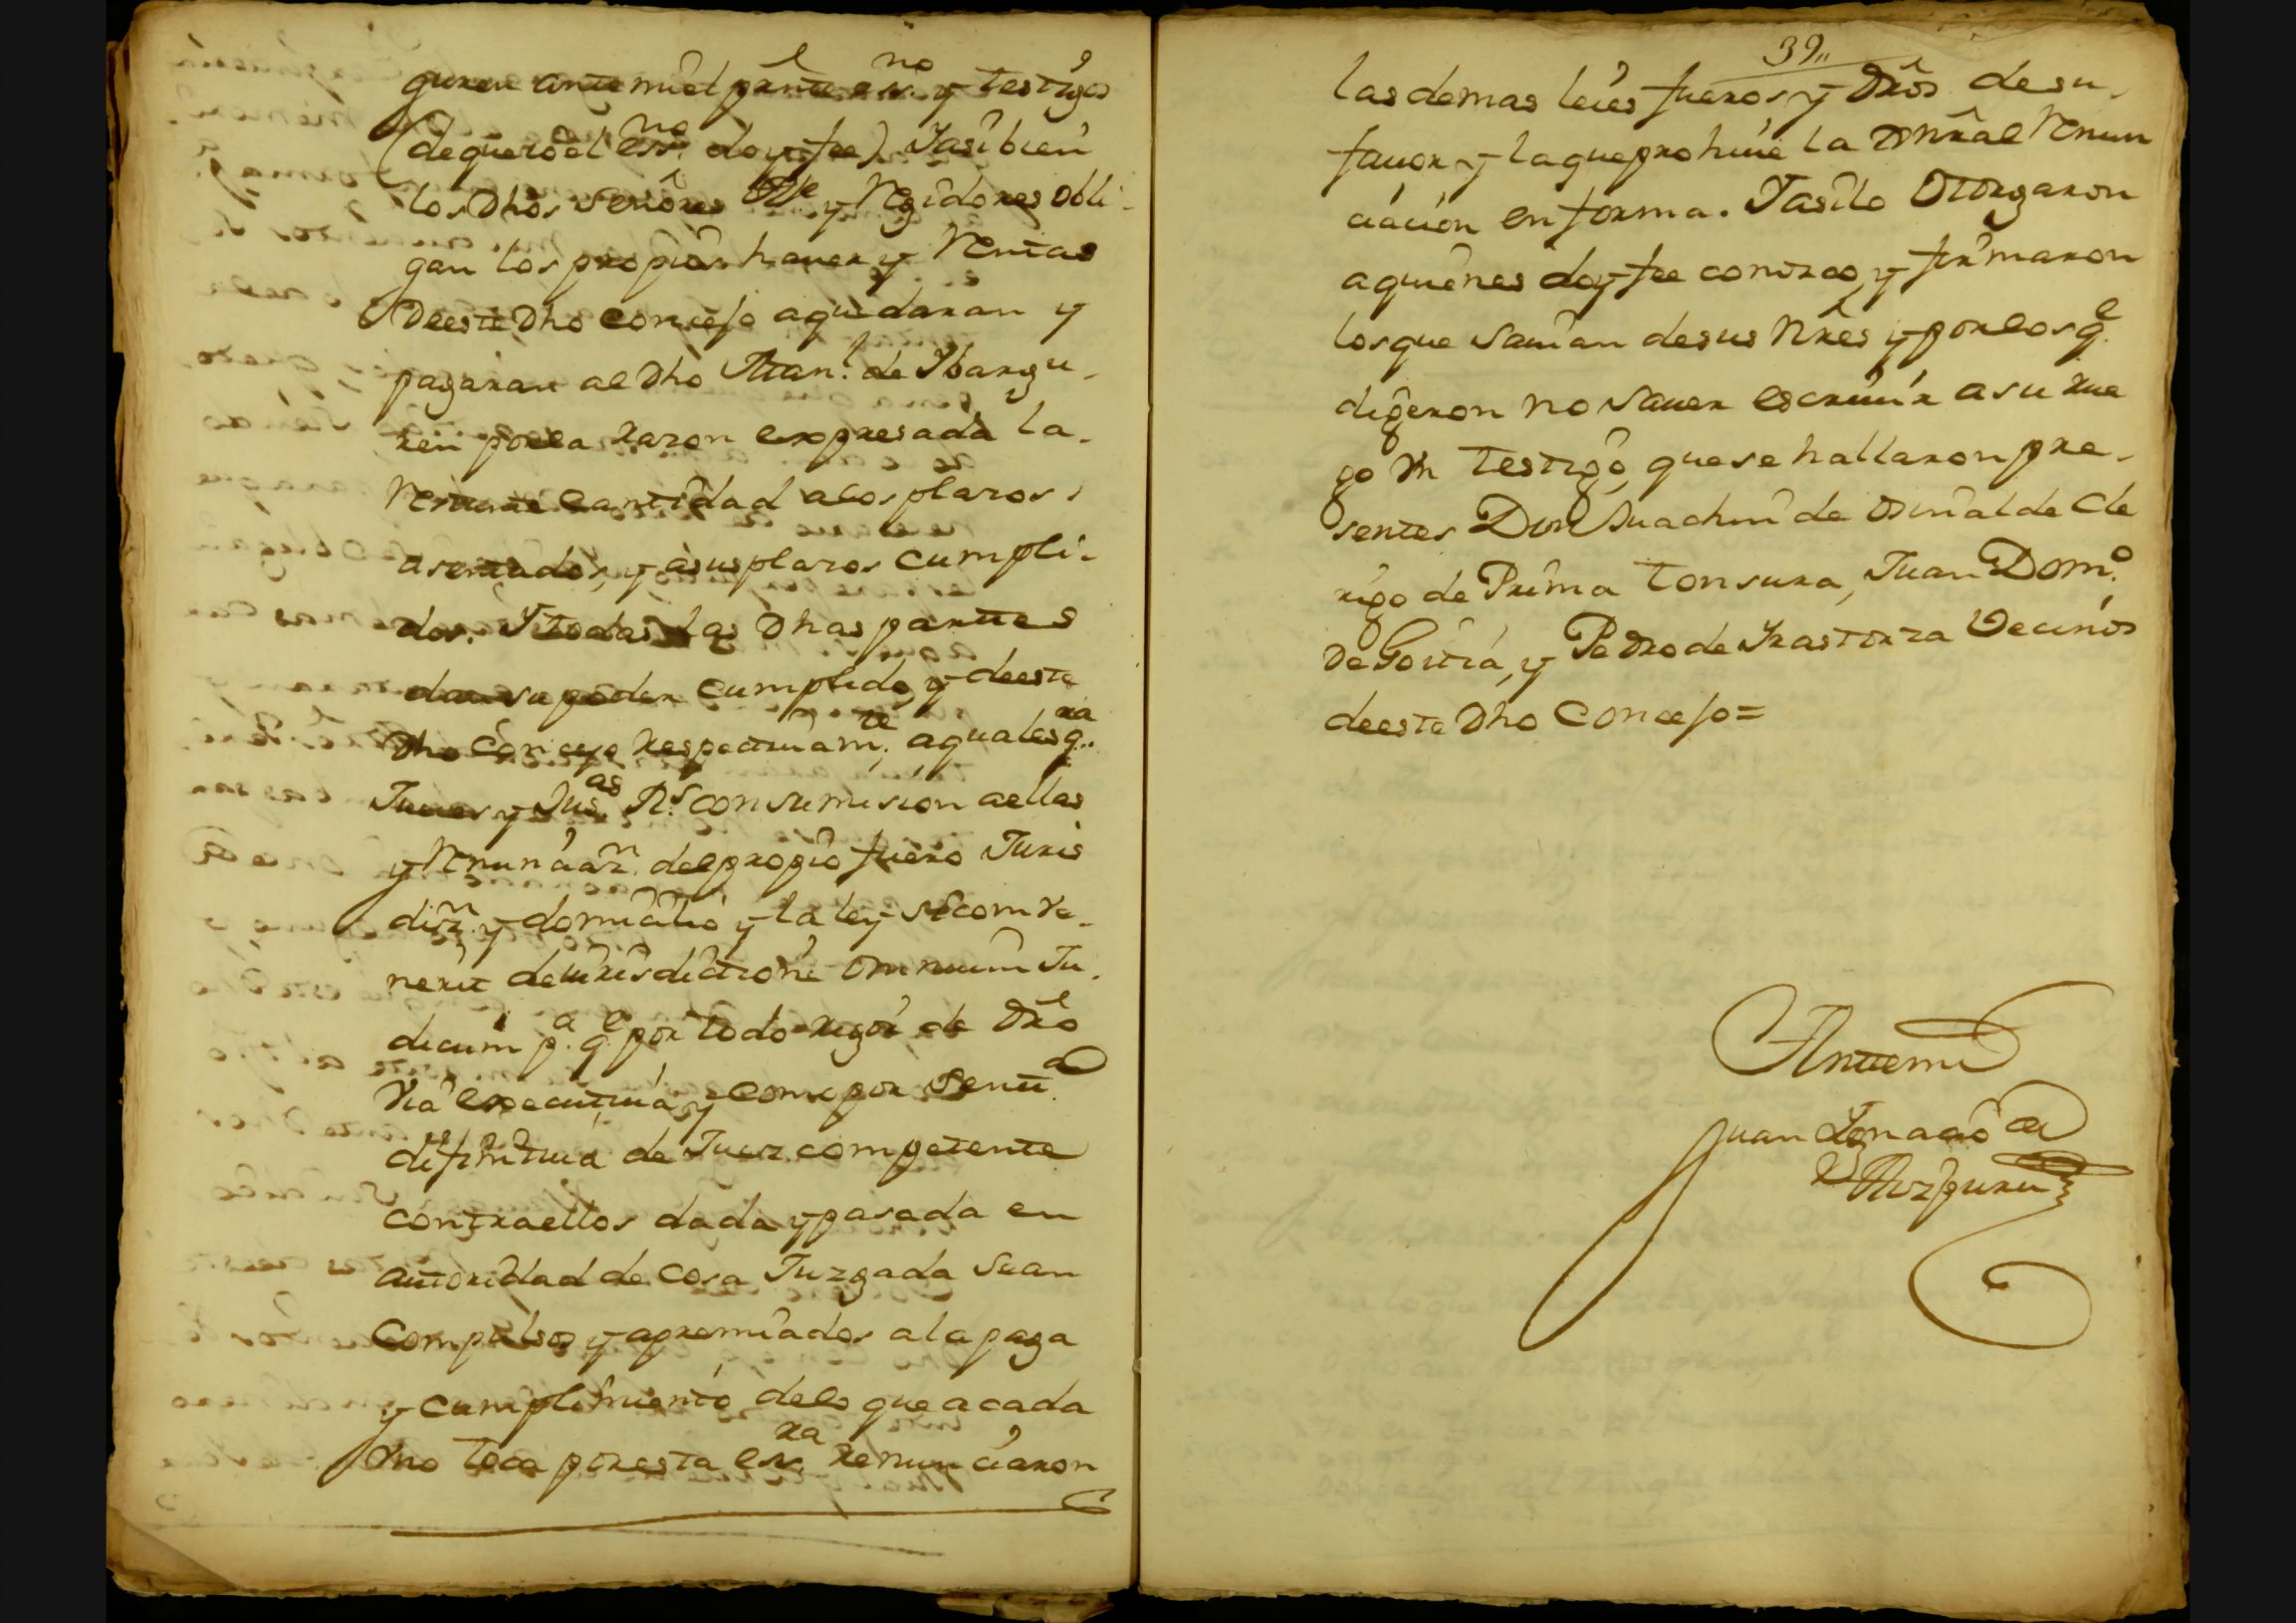 guren ante mi el pres.te ess.no y testigos
(de que io el ess.no doy fee) Y asi bien
los Dhos Señores Alle y Regidores obli-
gan los propios haver y Rentas
de este Dho Concejo a qu darán y
pagaran al Dho Man.l de Ybargu-
ren por la razon expresada la
Restante cantidad a los plazos
asentados, y a sus plazos cumpli-
dos. Y todas las Dhas partes
dan su poder cumplido, y de este
Dho Concejo respectivam.te a qualesq.ra
Jueces y Jus.as R.s con sumision a ellas
y Renunciaz.n del propio fuero Juris
diz.n y domicilio y la ley Si comve-
nerit de iurisdictione omnium Ju-
dicum p.a q.e por todo rigor de Dro
Via executiva y como por sent.a
difinitiva de Juez competente
contra ellos dada y pasada en
autoridad de cosa Juzgada Sean
Compulsos y apremiados a la paga
y cumplimiento de lo que a cada
Uno toca por esta ess.ra renunciaron
39,,
las demas leies fueros y Dros de su
favor y la que prohive la Gnral Renun
ciacion en forma. Y asi lo Otorgaron
a quienes doy fee conozco, y firmaron
los que Savian de sus Nres y por los q.e
digeron no Saver escrivir a su rue
go Un testigo, que se hallaron pre-
sentes Don Juachin de Osinalde Cle
rigo de Prima tonsura, Juan Dom.o
De Goitia, y Pedro de Yrastorza Vecinos
de este Dho Concejo =
Ante mi
Juan Ignacio de
Aizpuru